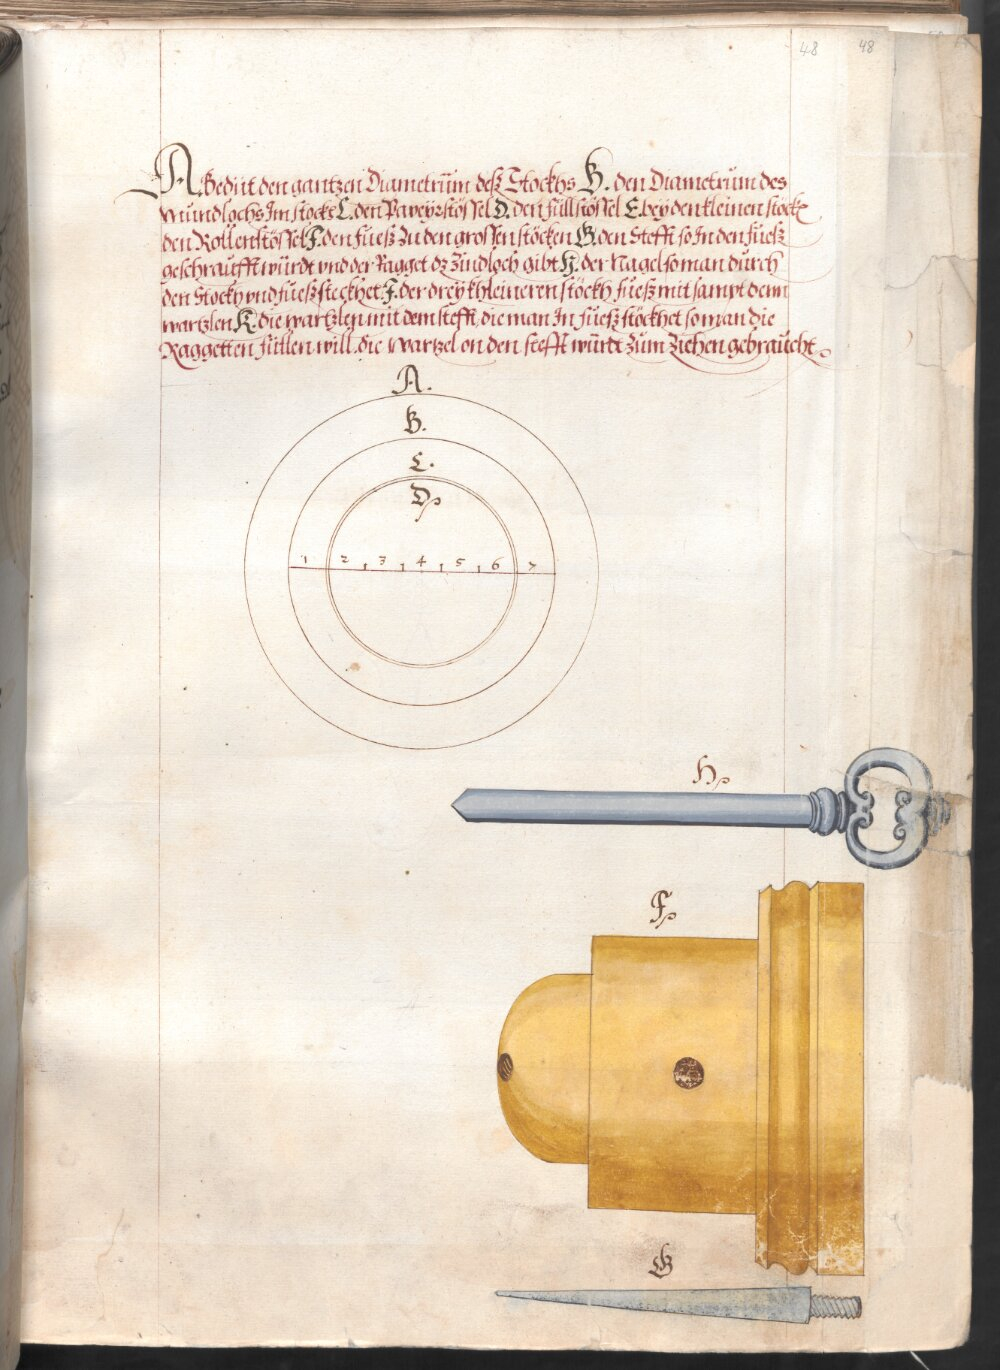 48 48
A. Bedüt den gantzen Diametrüm deß Stockhs B. den Diametrum des
Mundlochs Im stocke C. den Papeyrstössel D. den füllstössel E. bey den kleinen stöcke
den Rollenstössel F. den fueß zu den grossen stöcken G. den Stefft so In den fueß
geschraufft würdt vnd der Ragget dz Zindloch gibt H. der Nagel so man durch
den Stockh vnd fueß steckhet J. der drey khleineren stöckh fueß mit sampt denn
wartzlen K. die wartzlen mit dem stefft, die man In fueß stöckhet so man die
Raggetten füllen will. die wartzel on den stefft würdt zum Ziehen gebraücht
A.
B.
C.
D
1 2 3 4 5 6 7
H
F
G